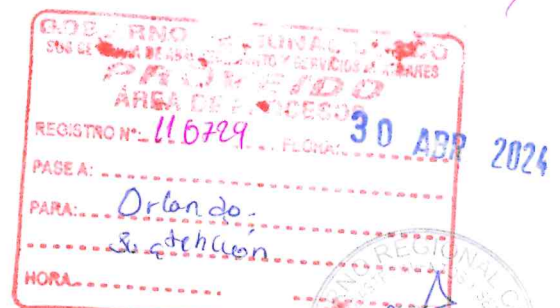 GOBIERNO REGIONAL CUSCO
SUB GERENCIA DE ABASTECIMIENTO Y SERVICIOS AUXILIARES
PROVEIDO
ÁREA DE PROCESOS
REGISTRO N°: 116729 FECHA: 30 ABR 2024
PASE A:
PARA: Orlando.
Su atención
HORA
REGIONAL